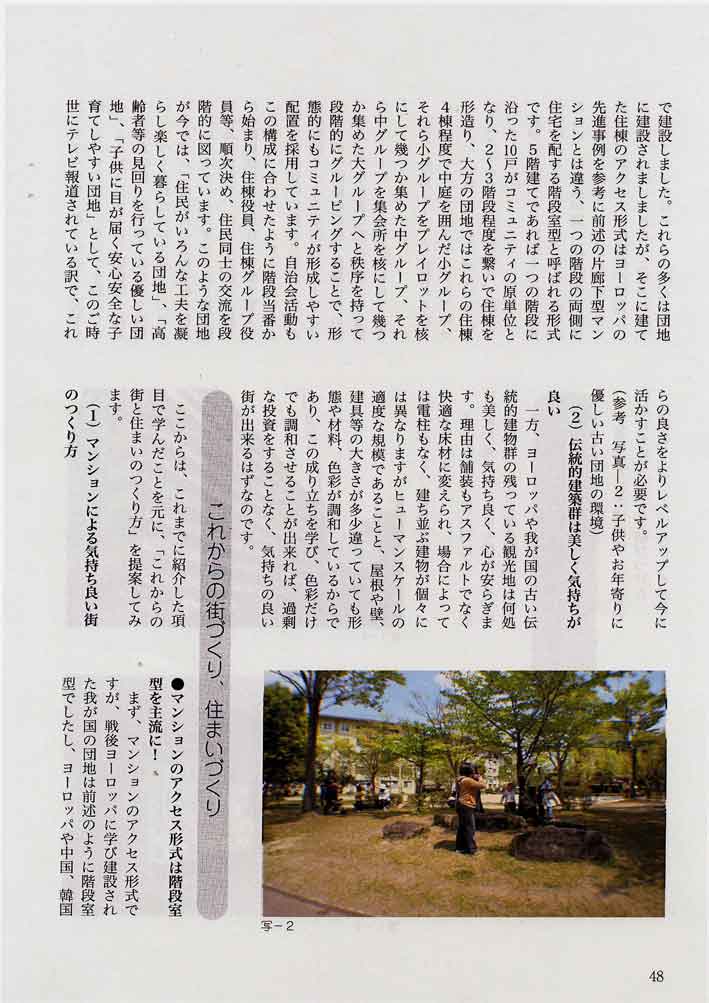 で建設しました。これらの多くは団地
に建設されましましたが、そこに建て
た住棟のアクセス形式はヨーロッパの
先進事例を参考に前述の片廊下型マン
ションとは違う、一つの階段の両側に
住宅を配する階段室型と呼ばれる形式
です。５階建てであれば一つの階段に
沿った10戸がコミュニティの原単位と
なり、２〜３階段程度を繋いで住棟を
形造り、大方の団地ではこれらの住棟
４棟程度で中庭を囲んだ小グループ、
それら小グループをプレイロットを核
にして幾つか集めた中グループ、それ
ら中グループを集会所を核にして幾つ
か集めた大グループへと秩序を持って
段階的にグルーピングすることで、形
態的にもコミュニティが形成しやすい
配置を採用しています。自治会活動も
この構成に合わせたように階段当番か
ら始まり、住棟役員、住棟グループ役
員等、順次決め、住民同士の交流を段
階的に図っています。このような団地
が今では、「住民がいろんな工夫を凝
らし楽しく暮らしている団地」、「高
齢者等の見回りを行っている優しい団
地」、「子供に目が届く安心安全な子
育てしやすい団地」として、このご時
世にテレビ報道されている訳で、これ
らの良さをよりレベルアップして今に
活かすことが必要です。
（参考　写真―２：子供やお年寄りに
優しい古い団地の環境）
（２）伝統的建築群は美しく気持ちが
良い
一方、ヨーロッパや我が国の古い伝
統的建物群の残っている観光地は何処
も美しく、気持ち良く、心が安らぎま
す。理由は舗装もアスファルトでなく
快適な床材に変えられ、場合によって
は電柱もなく、建ち並ぶ建物が個々に
は異なりますがヒューマンスケールの
適度な規模であることと、屋根や壁、
建具等の大きさが多少違っていても形
態や材料、色彩が調和しているからで
あり、この成り立ちを学び、色彩だけ
でも調和させることが出来れば、過剰
な投資をすることなく、気持ちの良い
街が出来るはずなのです。
これからの街づくり、住まいづくり
ここからは、これまでに紹介した項
目で学んだことを元に、「これからの
街と住まいのつくり方」を提案してみ
ます。
（１）マンションによる気持ち良い街
のつくり方
●マンションのアクセス形式は階段室
型を主流に！
まず、マンションのアクセス形式で
すが、戦後ヨーロッパに学び建設され
た我が国の団地は前述のように階段室
型でしたし、ヨーロッパや中国、韓国
写－２
48